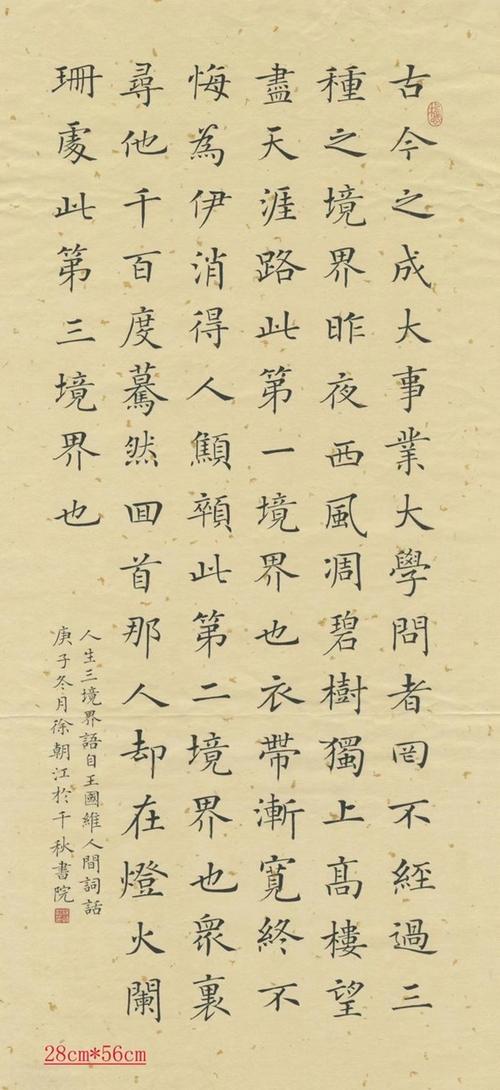 古今之成大事業大學問者罔不經過三
種之境界昨夜西風凋碧樹獨上髙樓望
盡天涯路此第一境界也衣帶漸寬終不
悔為伊消得人顦顇此第二境界也眾裏
尋他千百度驀然囬首那人却在燈火闌
珊處此第三境界也
人生三境界語自王國維人間詞話
庚子冬月徐朝江於千秋書院
28cm*56cm